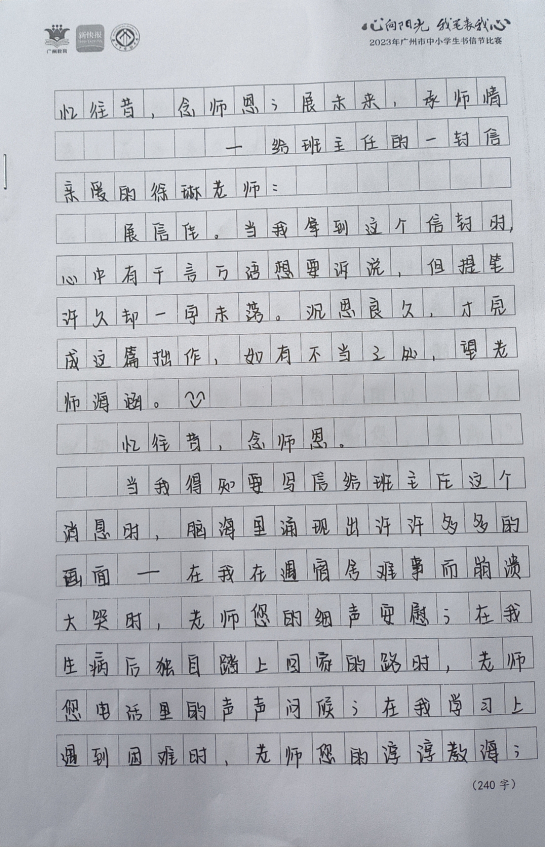 广州教育
新快报
心向阳光 我笔表我心
2023年广州市中小学生书信节比赛
忆往昔，念师恩；展未来，承师情
— 给班主任的一封信
亲爱的徐琳老师：
展信佳。当我拿到这个信封时，
心中有千言万语想要诉说，但提笔
许久却一字未落。沉思良久，才完
成这篇拙作，如有不当之处，望老
师海涵。
忆往昔，念师恩。
当我得知要写信给班主任这个
消息时，脑海里涌现出许许多多的
画面 — 在我在遇宿舍难事而崩溃
大哭时，老师您的细声安慰；在我
生病后独自踏上回家的路时，老师
您电话里的声声问候；在我学习上
遇到困难时，老师您的淳淳教海；
（240 字）